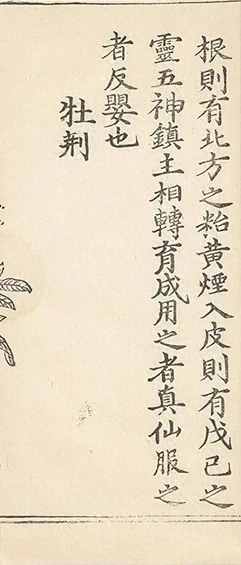 根則有北方之粭黃煙入皮則有戊己之
靈五神鎮主相轉育成用之者真仙服之
者反嬰也
牡荆